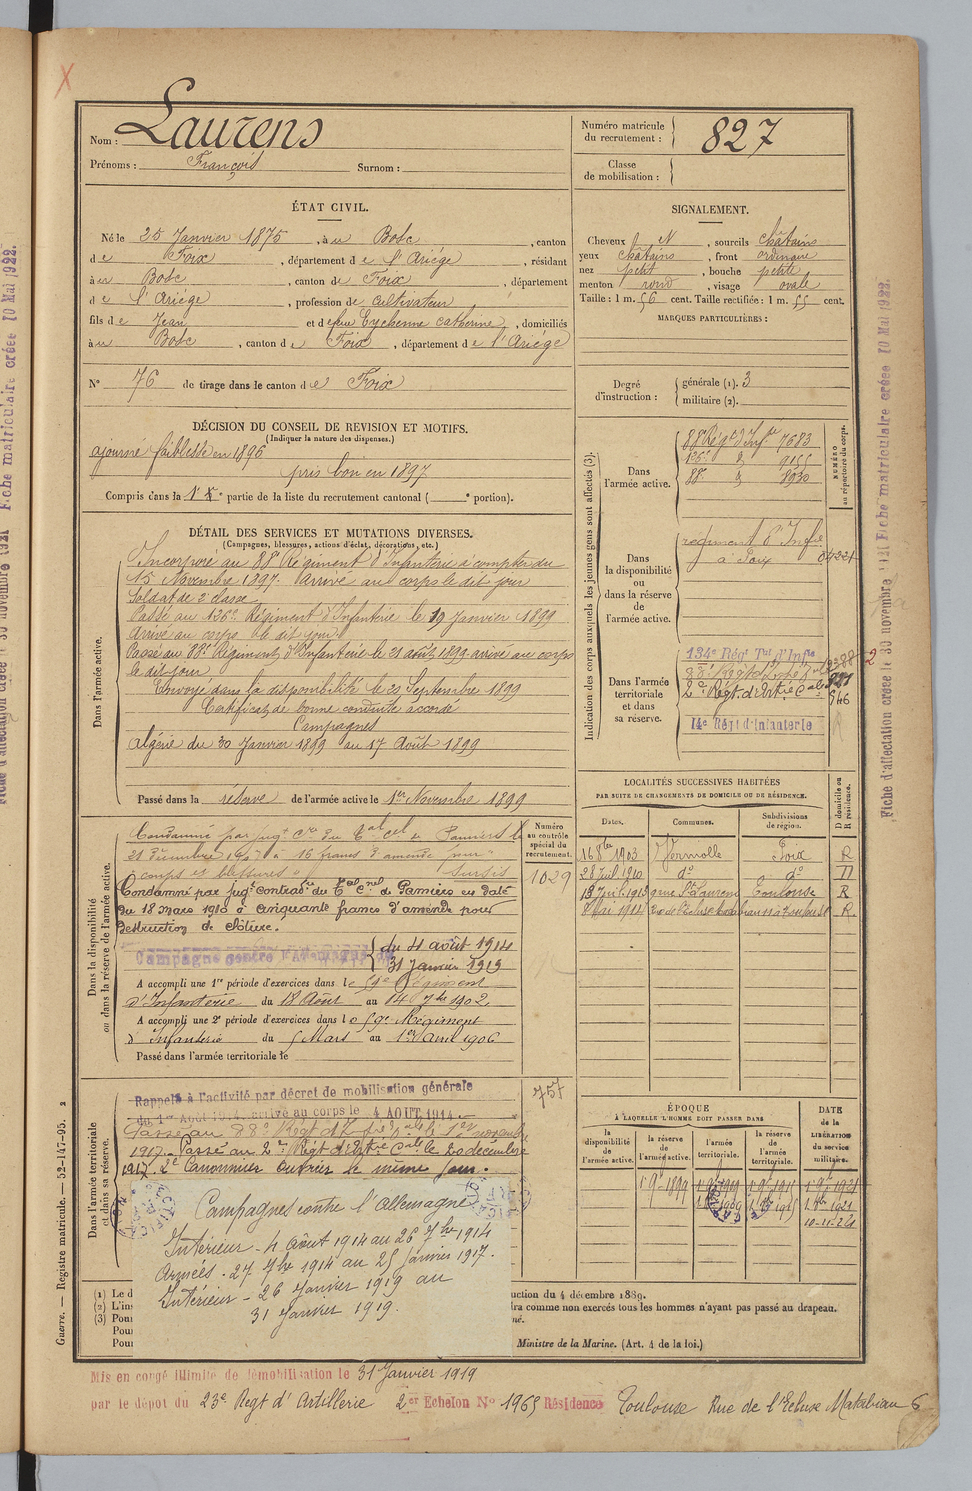 Nom : Laurens
Prénoms : François Surnom :
Numéro matricule du recrutement : 827
Classe de mobilisation :
ÉTAT CIVIL.
Né le 25 Janvier 1875, à u Bosc, canton
d e Foix, département d e l'Ariége, résidant
à u Bosc, canton d e Foix, département
d e l'Ariége, profession de cultivateur
fils d e Jean et d e feue Eychenne Catherine, domiciliés
à u Bosc, canton d e Foix, département d e l'Ariége
N° 76 de tirage dans le canton d e Foix
SIGNALEMENT.
Cheveux N, sourcils châtains
yeux châtains, front ordinaire
nez petit, bouche petite
menton rond, visage ovale
Taille : 1 m. 56 cent. Taille rectifiée : 1 m. 55 cent.
MARQUES PARTICULIÈRES :
Degré d'instruction : générale (1). 3
militaire (2).
DÉCISION DU CONSEIL DE REVISION ET MOTIFS.
(Indiquer la nature des dispenses.)
ajourné faiblesse en 1896
pris bon en 1897
Compris dans la 1e partie de la liste du recrutement cantonal ( e portion).
DÉTAIL DES SERVICES ET MUTATIONS DIVERSES.
(Campagnes, blessures, actions d'éclat, décorations, etc.)
Dans l'armée active.
Incorporé au 88e Régiment d'Infanterie à compter du
15 Novembre 1897. Arrivé au corps le dit jour
Soldat de 2e classe
Passé au 126e Régiment d'Infanterie le 19 Janvier 1899
Arrivé au corps le dit jour
Passé au 88e Régiment d'Infanterie le 21 août 1899 arrivé au corps
le dit jour
Envoyé dans la disponibilité le 21 Septembre 1899
Certificat de bonne conduite accordé
Campagnes
Algérie du 30 Janvier 1899 au 17 Août 1899
Passé dans la réserve de l'armée active le 1er Novembre 1899
Indication des corps auxquels les jeunes gens sont affectés (3).
NUMÉRO au répertoire du corps.
Dans l'armée active.
88e Régt d'Infie 7683
126e d° 9155
88e d° 8930
Dans la disponibilité ou dans la réserve de l'armée active.
régiment d'Infie
à Foix 04221
Dans l'armée territoriale et dans sa réserve.
134e Régt Tal d'Infie
2e Régt d'Artie Cale
14e Régt d'Infanterie
LOCALITÉS SUCCESSIVES HABITÉES
PAR SUITE DE CHANGEMENTS DE DOMICILE OU DE RÉSIDENCE.
Dates. Communes. Subdivisions de région. D domicile ou R résidence.
16 8bre 1903 Verniolle Foix R
28 Juil. 1910 d° d° D
Toulouse R
8 Mai 1914 Toulouse R
Dans la disponibilité ou dans la réserve de l'armée active.
Numéro au contrôle spécial du recrutement.
1029
Condamné par jugt cre du Tal Cel de Pamiers le
21 décembre 1907 à 16 francs d'amende pour
coups et blessures sursis
Condamné par jugt contradre du Tal Cnel de Pamiers en date
du 18 mars 1910 à cinquante francs d'amende pour
destruction de clôture.
Campagne contre l'Allemagne du
31 Janvier 1919
A accompli une 1re période d'exercices dans l e 59e Régiment
d'Infanterie du 18 Août au 14 7bre 1902.
A accompli une 2e période d'exercices dans l e 59e Régiment
d'Infanterie du 5 Mars au 1er Avril 1906
Passé dans l'armée territoriale le
Dans l'armée territoriale et dans sa réserve.
757
Rappelé à l'activité par décret de mobilisation générale
du 1er Août 1914, arrivé au corps le 4 AOUT 1914.
Passé au
1917. Passé au 2e Régt d'Artie Cale le 20 décembre
1917. 2e Canonnier Ouvrier le même jour.
Campagnes contre l'Allemagne
Intérieur - 4 Août 1914 au 26 7bre 1914
Armées - 27 7bre 1914 au 25 Janvier 1917.
Intérieur - 26 Janvier 1919 au
31 Janvier 1919.
ÉPOQUE
À LAQUELLE L'HOMME DOIT PASSER DANS
la disponibilité de l'armée active. la réserve de l'armée active. l'armée territoriale. la réserve de l'armée territoriale.
DATE DE LA LIBÉRATION du service militaire.
10-11-21
(1) Le d
(2) L'in
(3) Pour
Pour
Pour
uction du 4 décembre 1889.
dra comme non exercés tous les hommes n'ayant pas passé au drapeau.
né.
Ministre de la Marine. (Art. 4 de la loi.)
Guerre. — Registre matricule. — 52-147-95. 2
Mis en congé illimité de démobilisation le 31 Janvier 1919
par le dépôt du 23e Regt d'Artillerie 2er Echelon N° 1965 Résidence Toulouse Rue de l'Ecluse Matabiau 6
Fiche d'affectation créée le 30 novembre 1921 Fiche matriculaire créée 10 Mai 1922.
Fiche d'affectation créée le 30 novembre 1921 Fiche matriculaire créée 10 Mai 1922.